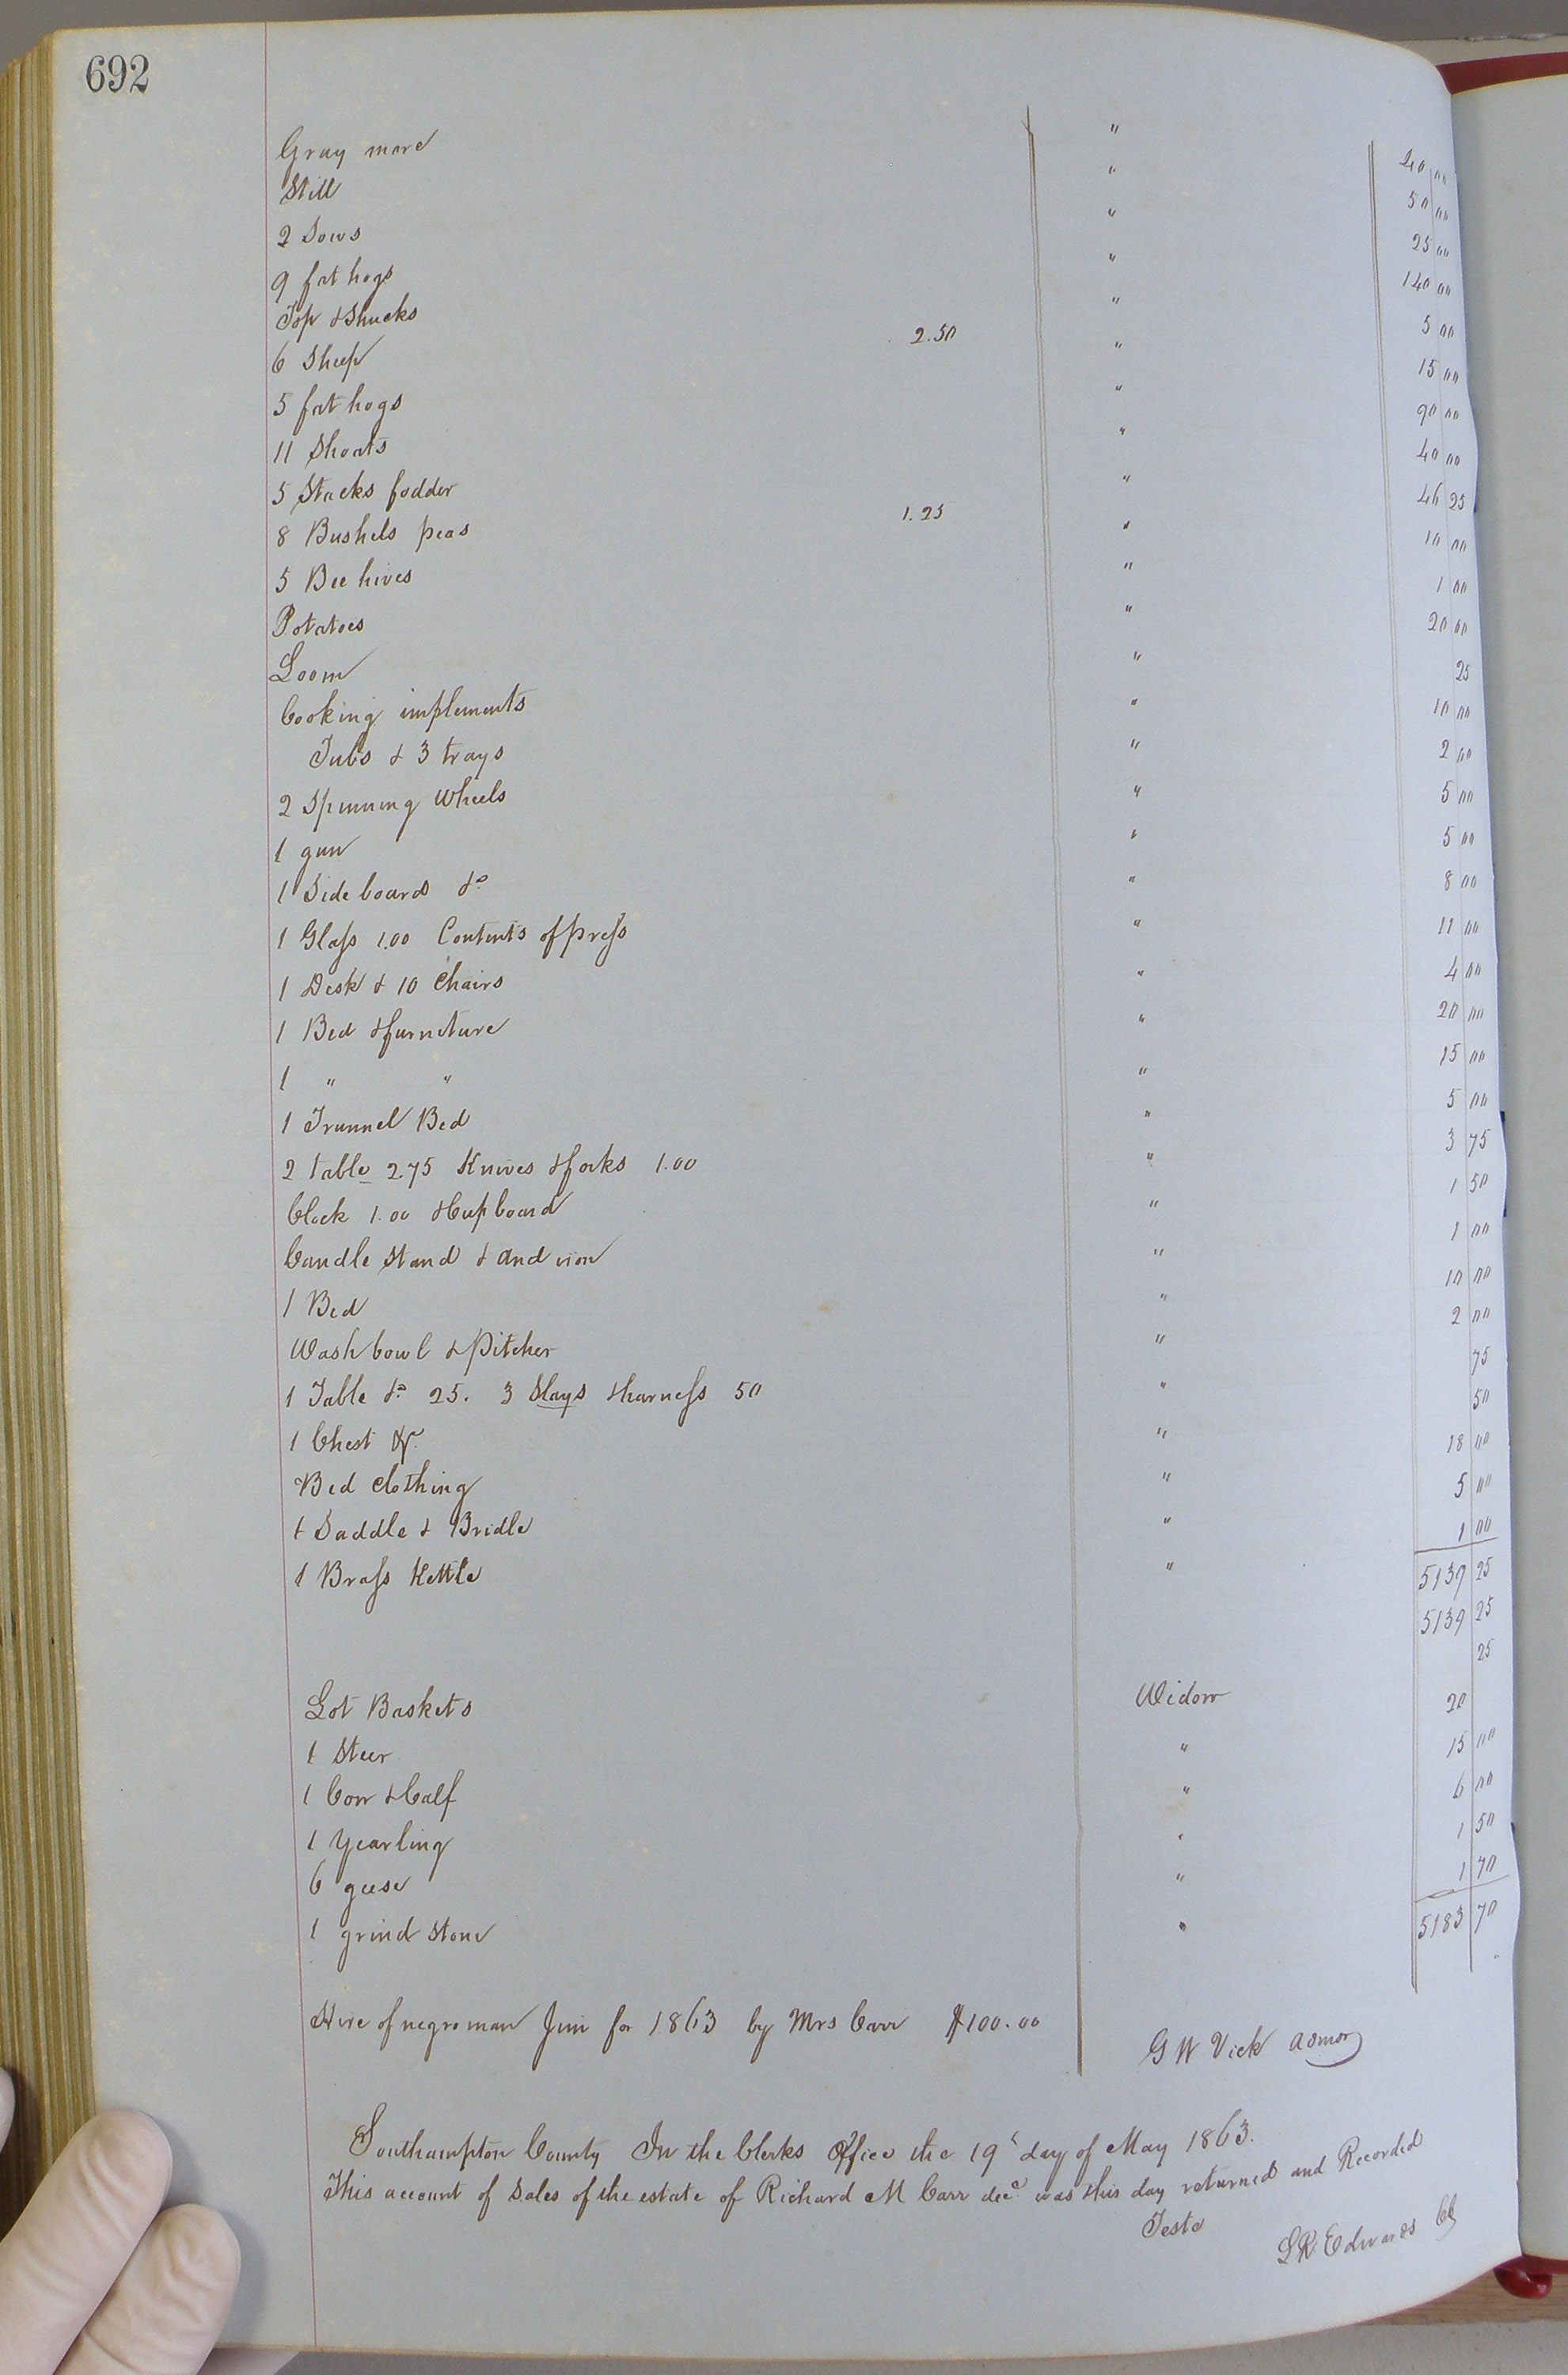 692
Gray mare " 40 00
Still " 50 00
2 Sows " 25 00
9 fat hogs " 140 00
Top & Shucks " 5 00
6 Sheep 2.50 " 15 00
5 fat hogs " 90 00
11 Shoats " 40 00
5 Stacks fodder " 46 25
8 Bushels peas 1.25 " 10 00
5 Bee hives " 1 00
Potatoes " 20 00
Loom " 25
Cooking implements " 10 00
Tubs & 3 trays " 2 00
2 Spinning Wheels " 5 00
1 gun " 5 00
1 Side board &c " 8 00
1 Glass 1.00 Contents of press " 11 00
1 Desk & 10 Chairs " 4 00
1 Bed & furniture " 20 00
1 " " " 15 00
1 Trunnel Bed " 5 00
2 table 2.75 Knives & forks 1.00 " 3 75
Clock 1.00 & Cupboard " 1 50
Candle Stand & and iron " 1 00
1 Bed " 10 00
Wash bowl & Pitcher " 2 00
1 Table &c 25. 3 Slays & harness 50 " 75
1 Chest &c. " 50
Bed Clothing " 18 00
1 Saddle & Bridle " 5 00
1 Brass Kettle " 1 00
5139 25
5139 25
Lot Baskets Widow 25
1 Steer " 20
1 Cow & Calf " 15 00
1 Yearling " 6 00
6 geese " 1 50
1 grind Stone " 1 70
5183 70
Hire of negro man Jim for 1863 by Mrs Carr $100.00
G W Vick admor
Southampton County In the Clerks Office the 19th day of May 1863.
This account of Sales of the estate of Richard M Carr decd was this day returned and Recorded
Teste
L R Edwards Cl